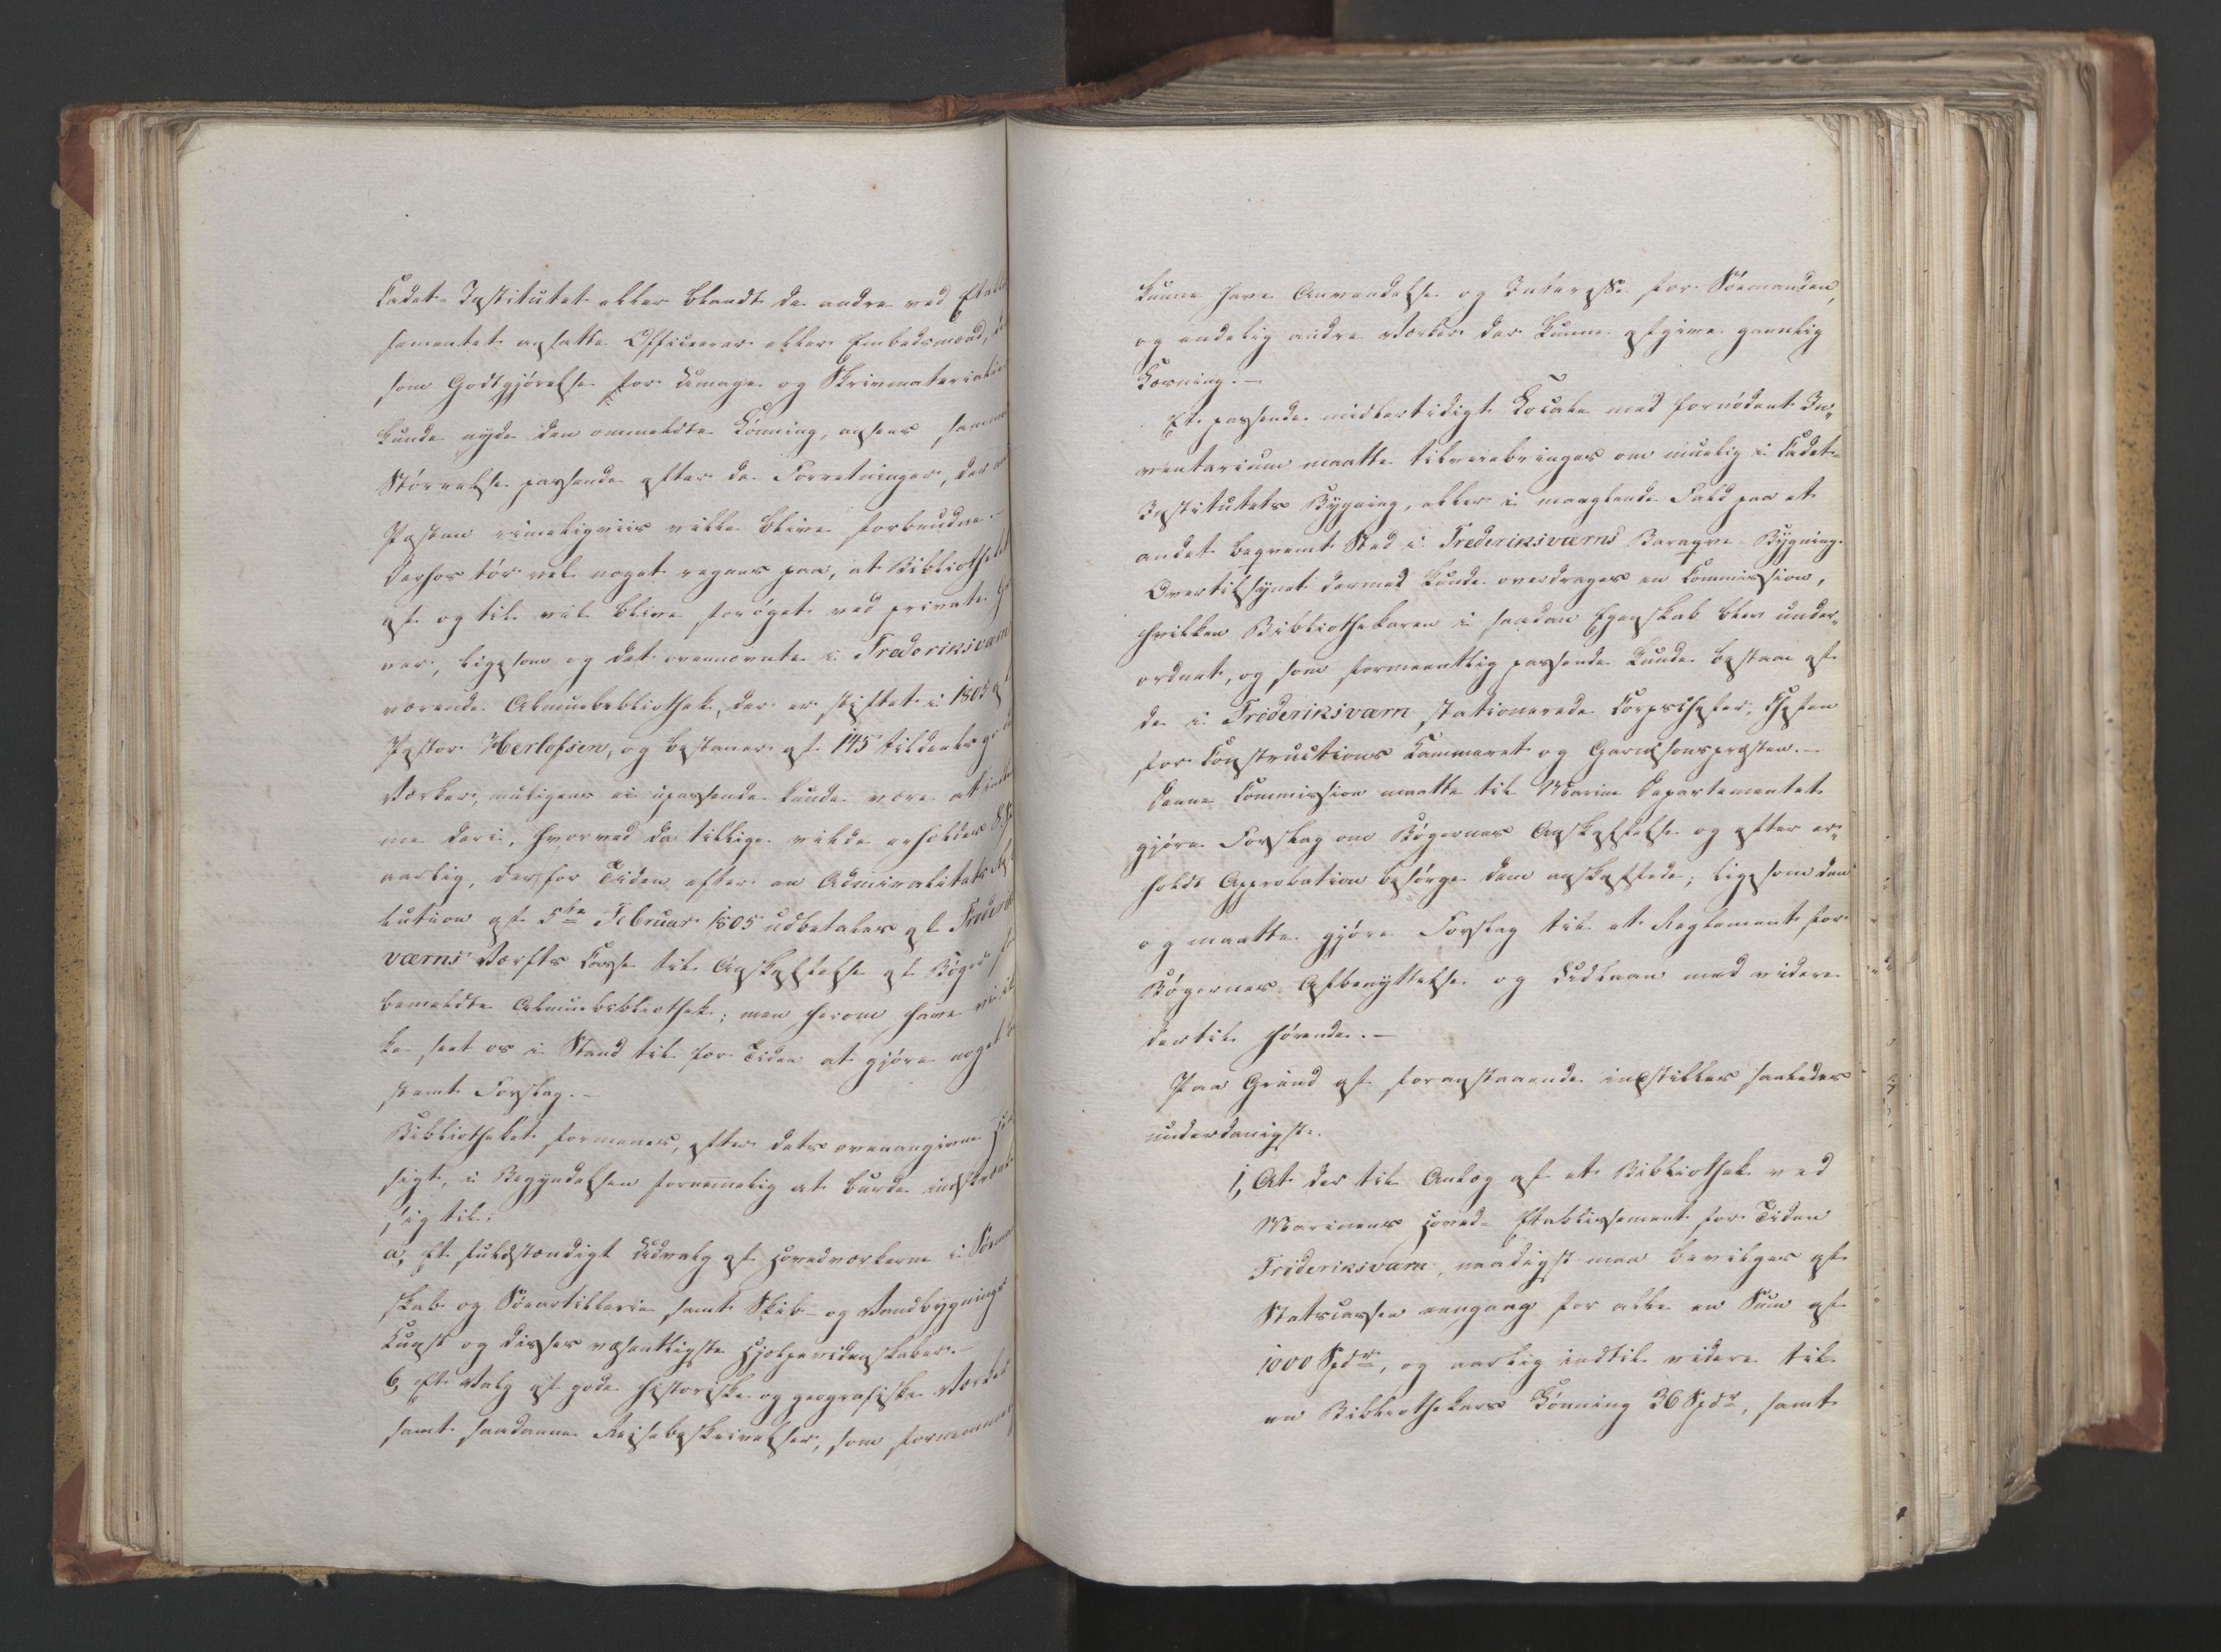 Cadet-Institutet eller blandt de andre ved Etablis
sementet ansatte Officerer eller Embedsmænd, de
som Godtgjørelse for Umage og Skrivmaterialier
kunde nyde den ommeldte Lønning, ansees samme
Størrelse passende efter de Forretninger, der med
Posten rimeligviis ville blive forbundne.
Derhos tør vel noget regnes paa, at Bibliotheket
af og til vil blive forøget ved private Ga
ver, ligesom og det ovennævnte i Frederiksværn
værende Almuebibliothek, der er stiftet i 1805 af
Pastor Herlofsen, og bestaaer af 145 tildeels gode
Værker, muligens ei upassende kunde være at indlem
me deri, hvorved da tillige vilde erholdes
aarlig, der for Tiden efter en Admiralitets Reso
lution af 5te Februar 1805 udbetales af Frederiks
værns Værfts Casse til Anskaffelse af Bøger for
bemeldte Almuebibliothek; men herom have vi ik
ke seet os i Stand til for Tiden at gjøre noget be
stemt Forslag.-
Bibliotheket formenes, efter dets ovenangivne Hen
sigt, i Begyndelsen fornemmelig at burde indskrænke
sig til:
a, Et fuldstændigt Udvalg af Hovedværkerne i Sømand
skab og Søeartillerie samt Skib- og Vandbygnings
Kunst og disses væsentligste Hjælpevidenskaber.-
b, Et Valg af gode historiske og geografiske Værker
samt saadanne Reisebeskrivelser, som fornemmelig
kunne have Anvendelse og Interesse for Søemanden,
og endelig andre Værker der kunne afgive gavnlig
Læsning.-
Et passende midlertidigt Locale med fornødent In-
ventarium maatte tilveiebringes om muelig i Cadet-
Institutets Bygning, eller i manglende Fald paa et
andet beqvemt Sted i Frederiksværns Baraqve-Bygning.
Overtilsynet dermed kunde overdrages en Commission,
hvilken Bibliothekaren i saadan Egenskab blev under-
ordnet, og som formeentlig passende kunde bestaae af
de i Frideriksværn stationerede Corpschefer, Chefen
for Constructions Kammeret og Garnisonspræsten.-
Denne Commission maatte til Marine Departementet
gjøre Forslag om Bøgernes Anskaffelse og efter er-
holdt Approbation besørge dem anskaffede; ligesom den
og maatte gjøre Forslag til et Reglement for
Bøgernes Afbenyttelse og Udlaan med videre
dertil hørende.-
Paa Grund af foranstaaende indstilles saaledes
underdanigst:
1, At der til Anlæg af et Bibliothek ved
Marinens Hoved-Etablissement for Tiden
Frideriksværn, naadigst maa bevilges af
Statscassen eengang for alle en Sum af
1000 Spdr, og aarlig indtil videre til
en Bibliothekars Lønning 36 Spdr, samt